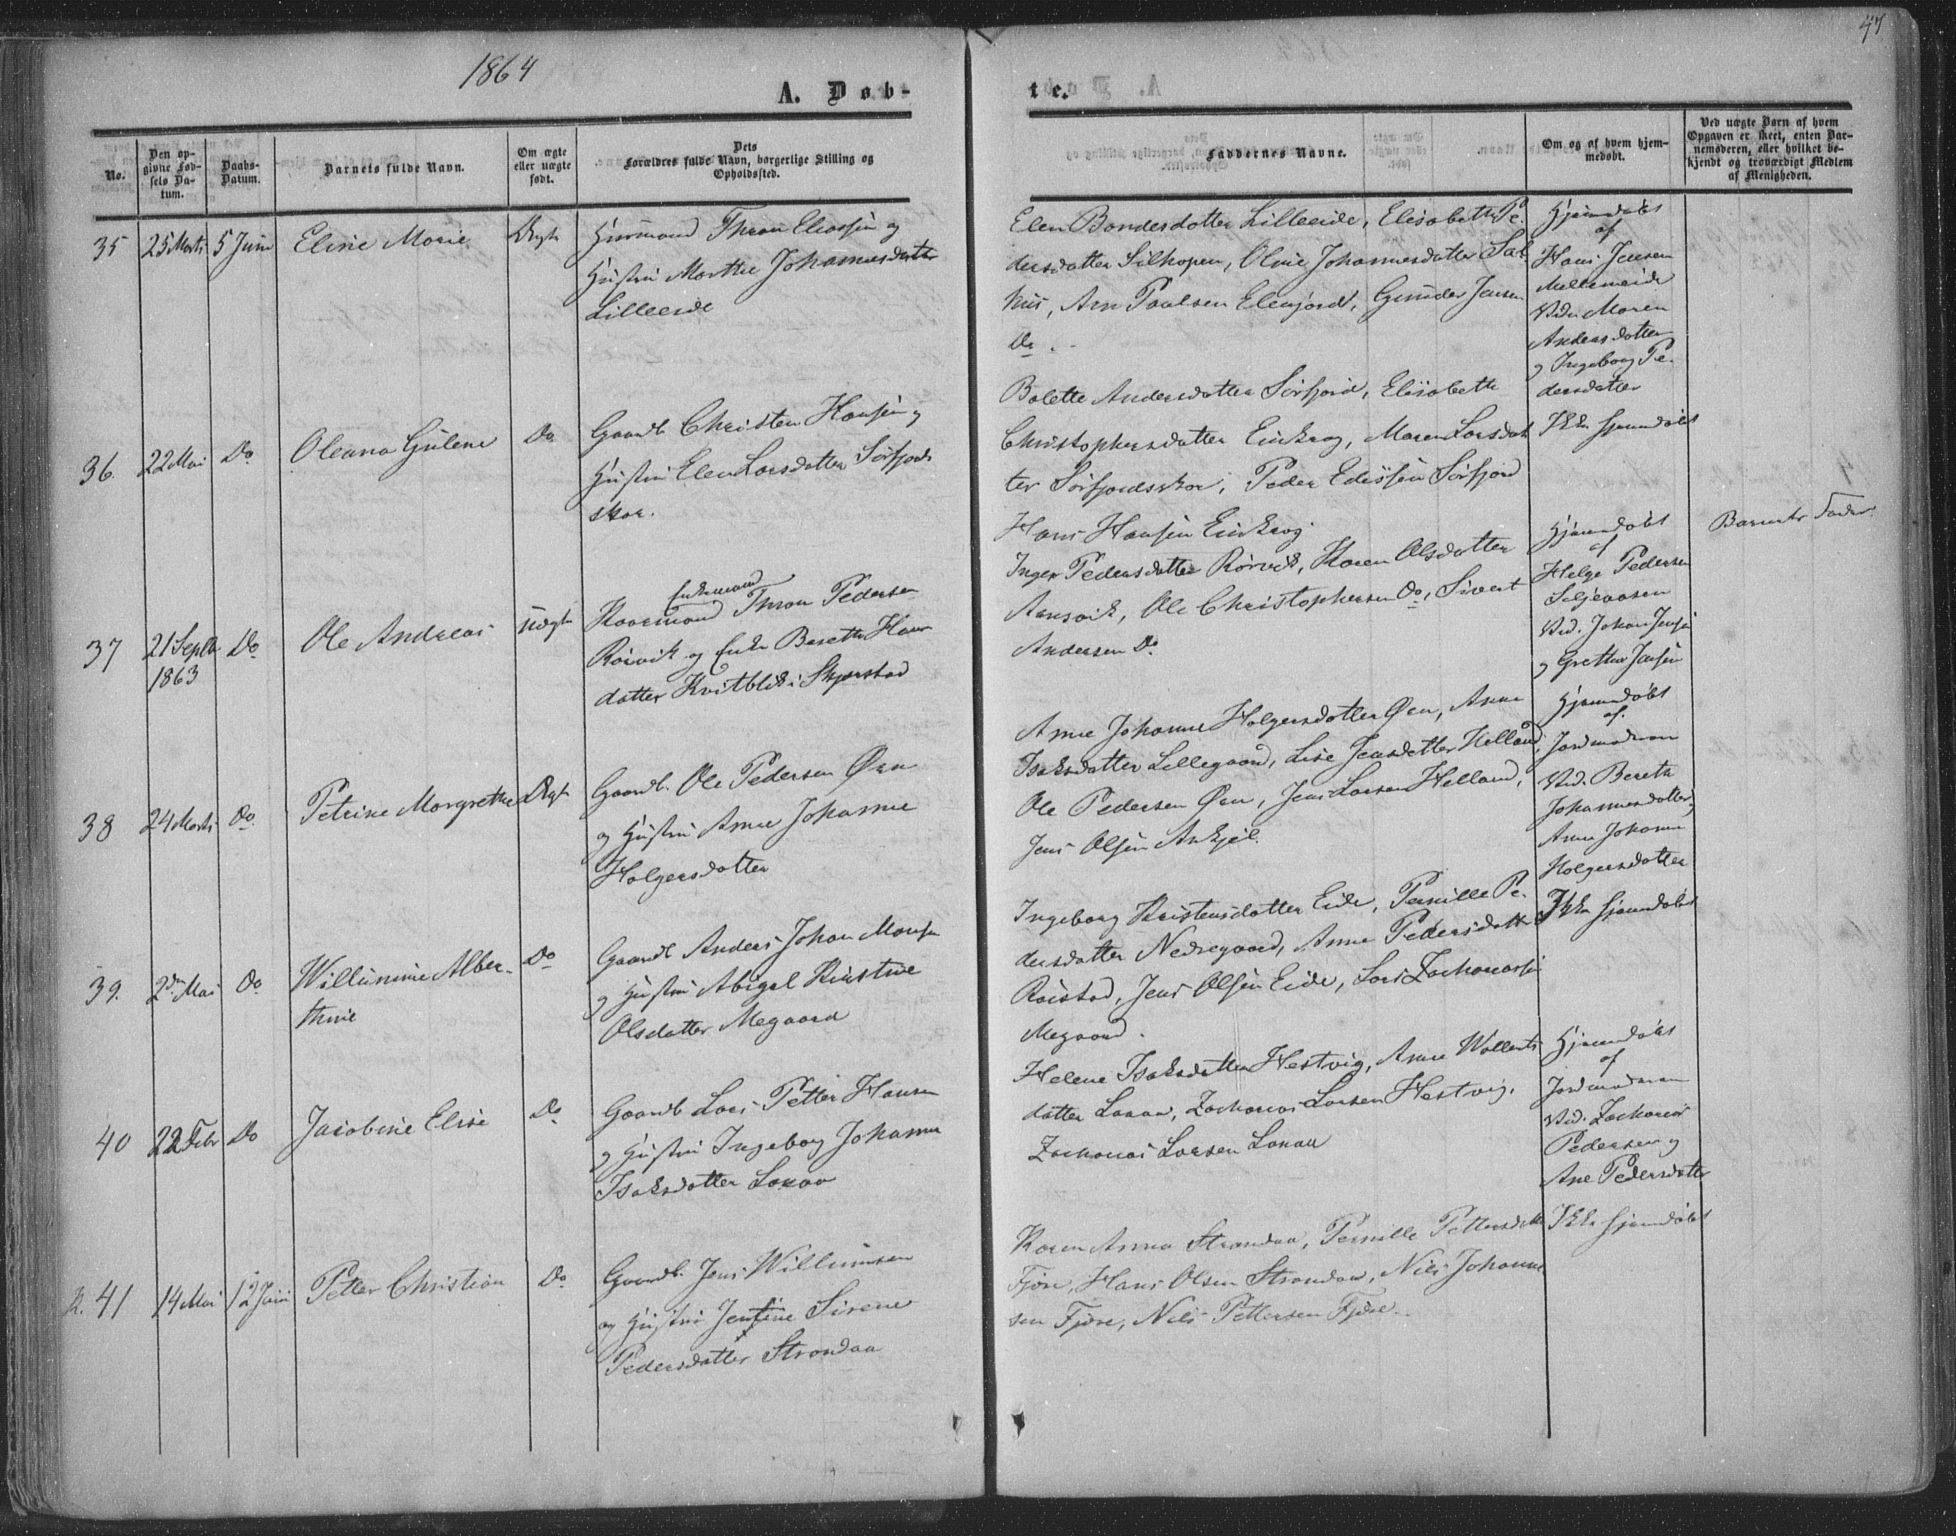 1864
47
A. Døb-
te.
No.
Den op-
givne Fød-
sels Da-
tum.
Daabs-
Datum.
Barnets fulde Navn.
Om ægte
eller uægte
født.
Dets
Forældres fulde Navn, borgerlige Stilling og
Opholdssted.
Faddernes Navne.
Om og af hvem hjem-
medøbt.
Ved uægte Børn af hvem
Opgaven er skeet, enten Bar-
nemoderen, eller hvilket be-
kjendt og troværdigt Medlem
af Menigheden.
35 25 Marts 5 Juni Eline Marie Ægte
Huusmand Thron Eliassen og
Hustru Marthe Johannesdatter
Lilleeide
Elen Bondesdatter Lilleeide, Elisabeth Pe-
dersdatter Silhopen, Oline Johannesdatter Sal-
hus, Arn Paulsen Elenjord, Gunder Jensen
Do.
Hjemdøbt
af
Hans Jensen
Mellemeide
Vidn. Maren
Andersdatter
og Ingeborg Pe-
dersdatter
36. 22 Mai Do Oleana Guline Do
Gaardb. Christen Hansen og
Hustru Elen Larsdatter Sørfjord-
skar.
Bolette Andersdatter Sørfjord, Elisabeth
Christophersdatter Enkrog, Maren Larsdat-
ter Sørfjordsskar, Peder Edissen Sørfjord
Hans Hansen Enkrog.
Ikke hjemdøbt
37 21 Septbr 1863 Do Ole Andreas Uægte
Enkemand
Kaarmand Thron Pedersen
Rørvik og Enke Berette Hans-
datter Kvitblik i Skjerstad
Inger Pedersdatter Rørvik, Karen Olsdatter
Arnsvik, Ole Christophersen Do, Sivert
Andersen Do.
Hjemdøbt
af
Helge Pedersen
Seljeaasen
Vid. Johan Jensen
og Grethe Jensen
Barnets Fader.
38 24 Marts Do. Petrine Margrethe Ægte
Gaardb. Ole Pedersen Øen
og Hustru Anne Johanne
Holgersdatter
Anne Johanne Holgersdatter Øen, Anne
Isaksdatter Lillegaard, Lise Jensdatter Helland,
Ole Pedersen Øen, Jens Larsen Helland,
Jens Olsen Ankjel.
Hjemdøbt
af.
Jordmoderen
Vid. Bereth
Johannesdatter,
Anne Johanne
Holgersdatter
39. 2den Mai Do Willumine Alber-
thine
Do
Gaardb Anders Johan Monsen
og Hustru Abigal Kirstine
Olsdatter Megaard
Ingeborg Kristensdatter Eide, Pernille Pe-
dersdatter Nedregaard, Anne Pedersdatter
Røistad, Jens Olsen Eide, Lars Zachariassen
Megaard.
Ikke hjemdøbt
40 22 Febr Do Jacobine Elise Do
Gaardb Lars Petter Hansen
og Hustru Ingeborg Johanna
Isaksdatter Lakaa
Helene Isaksdatter Hestvig, Anne Wollerts-
datter Lakaa, Zacharias Larsen Hestvig,
Zacharias Larsen Lakaa
Hjemdøbt
af
Jordmoderen
Vid. Zacharias
Pedersen og
Ane Pedersdatter
R. 41 14 Mai 12 Juni Petter Christian Do
Gaardb. Jens Willumsen
og Hustru Jensine Sirene
Pedersdatter Strandaa
Karen Anna Strandaa, Pernille Pettersdatter
Fjøre, Hans Olsen Strandaa, Nils Johanne-
sen Fjøre, Nils Pettersen Fjøre.
Ikke hjemdøbt